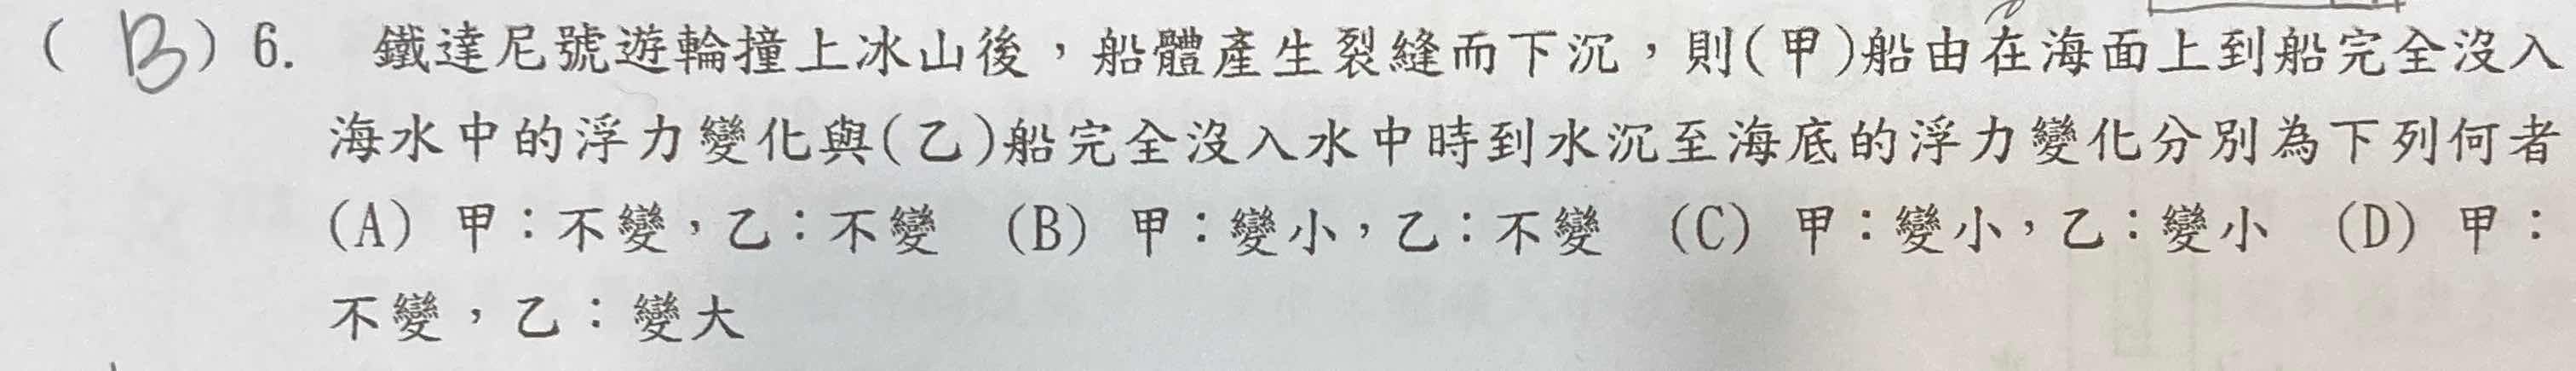 ( B ) 6. 鐵達尼號遊輪撞上冰山後，船體產生裂縫而下沉，則(甲)船由在海面上到船完全沒入
海水中的浮力變化與(乙)船完全沒入水中時到水沉至海底的浮力變化分別為下列何者
(A) 甲：不變，乙：不變 (B) 甲：變小，乙：不變 (C) 甲：變小，乙：變小 (D) 甲：
不變，乙：變大